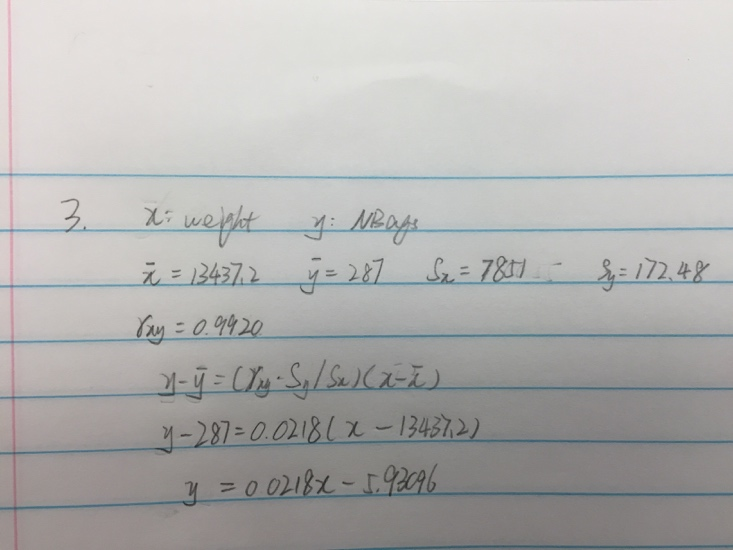 3. x: weight y: NBags
x̄ = 13437.2 ȳ = 287 Sx = 7851 Sy = 172.48
rxy = 0.9920
y-ȳ = (rxy · Sy / Sx)(x-x̄)
y-287 = 0.0218(x - 13437.2)
y = 0.0218x - 5.93096